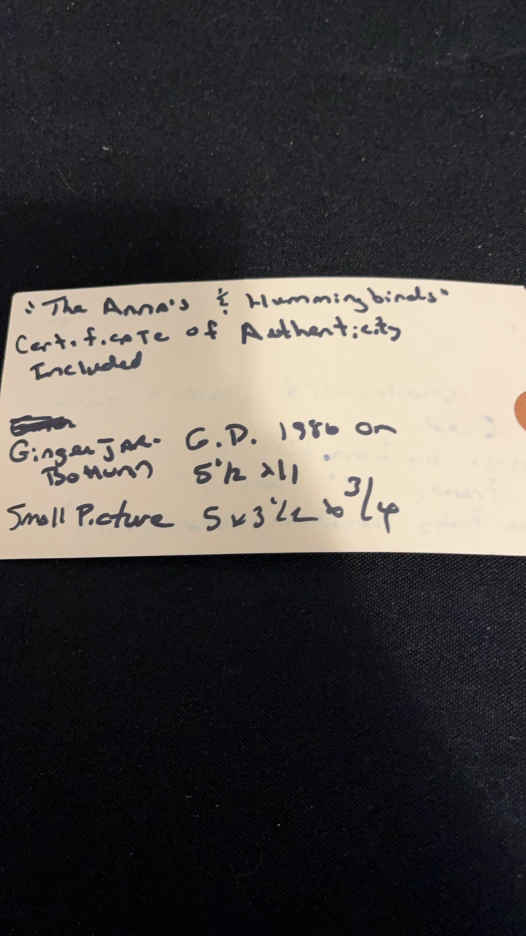 "The Anna's & Hummingbirds"
Certificate of Authenticity
Included
Ginger Jar- G.D. 1986 on
Bottom 5 1/2 x 11
Small Picture 5 x 3 1/2 3/4